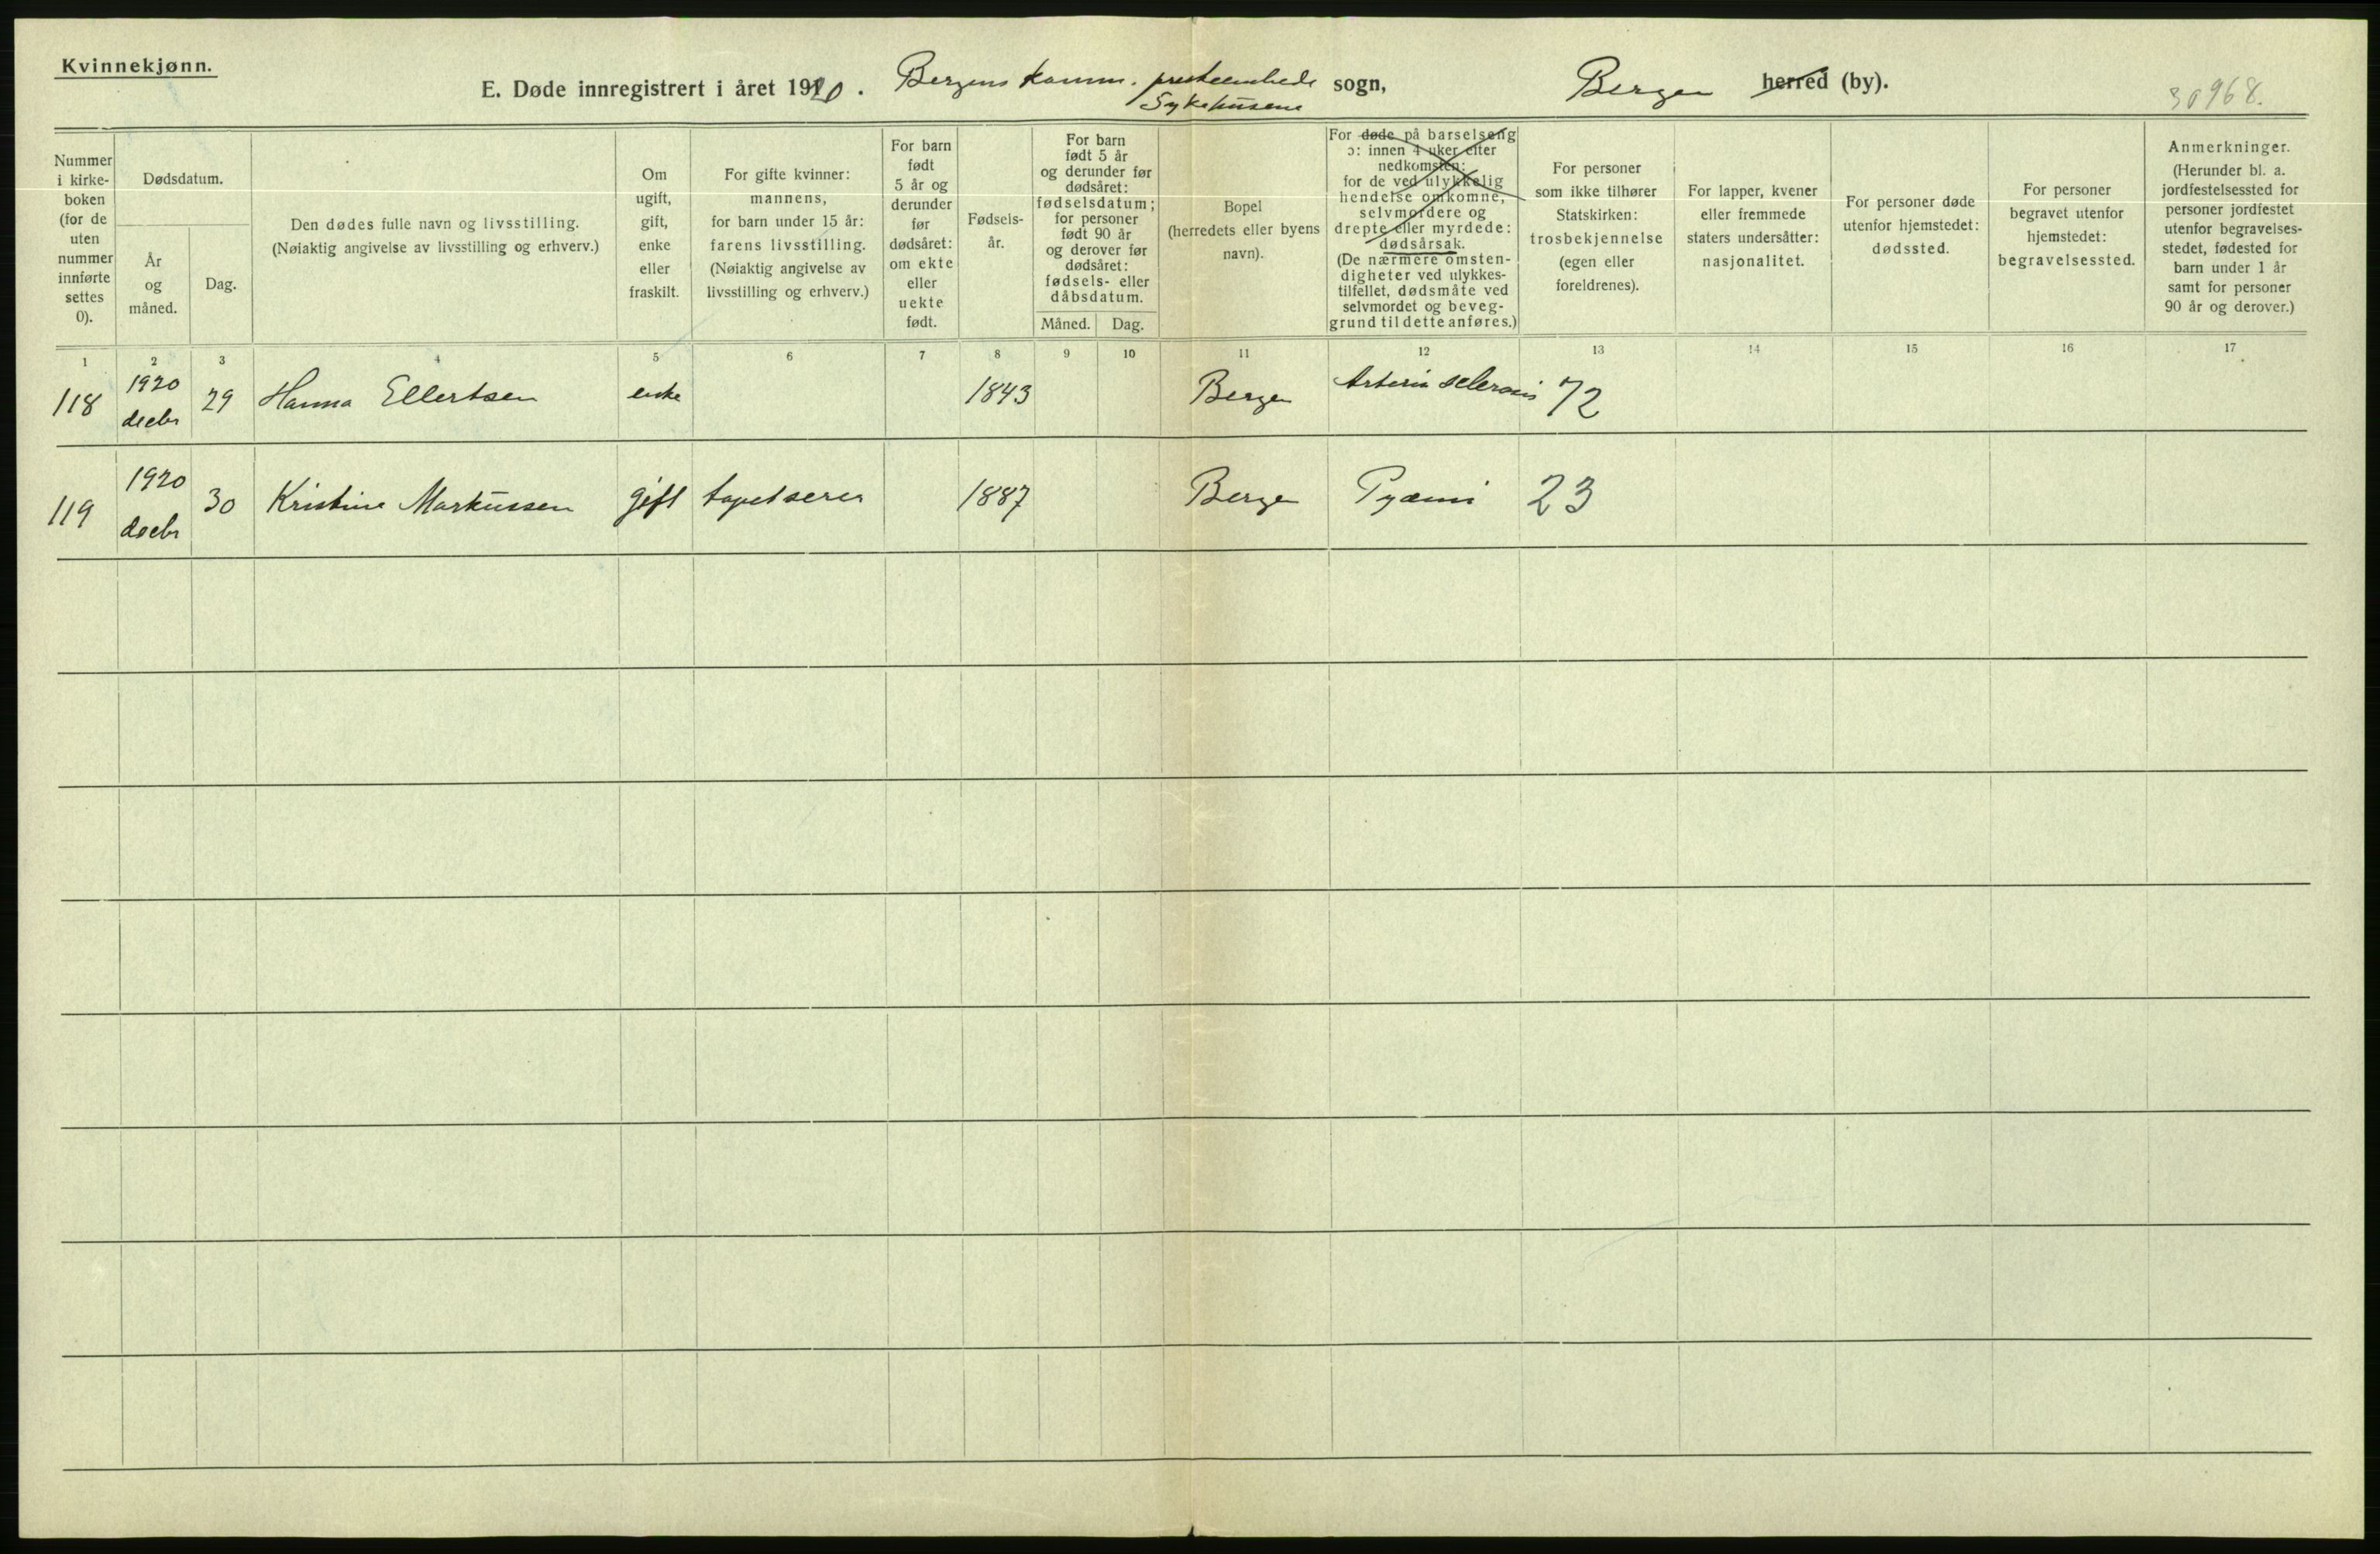 Kvinnekjønn.
E. Døde innregistrert i året 1920. Bergens komm. presteembede sogn, Bergen herred (by).
Sykehusene
30968.
Nummer i kirke-boken (for de uten nummer innførte settes 0).
Dødsdatum.
År og måned.
Dag.
Den dødes fulle navn og livsstilling.
(Nøiaktig angivelse av livsstilling og erhverv.)
Om ugift, gift, enke eller fraskilt.
For gifte kvinner: mannens, for barn under 15 år: farens livsstilling. (Nøiaktig angivelse av livsstilling og erhverv.)
For barn født 5 år og derunder før dødsåret: om ekte eller uekte født.
Fødsels-år.
For barn født 5 år og derunder før dødsåret: fødselsdatum; for personer født 90 år og derover før dødsåret: fødsels- eller dåbsdatum.
Måned. Dag.
Bopel (herredets eller byens navn).
For døde på barselseng ɔ: innen 4 uker efter nedkomsten: for de ved ulykkelig hendelse omkomne, selvmordere og drepte eller myrdede: dødsårsak. (De nærmere omsten-digheter ved ulykkes-tilfellet, dødsmåte ved selvmordet og beveg-grund til dette anføres.)
For personer som ikke tilhører Statskirken: trosbekjennelse (egen eller foreldrenes).
For lapper, kvener eller fremmede staters undersåtter: nasjonalitet.
For personer døde utenfor hjemstedet: dødssted.
For personer begravet utenfor hjemstedet: begravelsessted.
Anmerkninger. (Herunder bl. a. jordfestelsessted for personer jordfestet utenfor begravelses-stedet, fødested for barn under 1 år samt for personer 90 år og derover.)
1 2 3 4 5 6 7 8 9 10 11 12 13 14 15 16 17
118 1920 decbr 29 Hanna Ellertsen enke 1843 Bergen Arterio sclerosis 72
119 1920 decbr 30 Kristine Markussen gift tapetserer 1887 Bergen Pyæmi 23